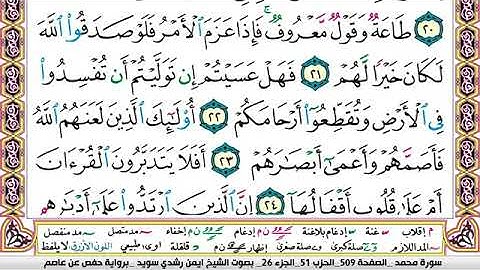 ٢٠ طَاعَةٌ وَقَوْلٌ مَّعْرُوفٌ ۚ فَإِذَا عَزَمَ ٱلْأَمْرُ فَلَوْ صَدَقُوا۟ ٱللَّهَ
لَكَانَ خَيْرًا لَّهُمْ ٢١ فَهَلْ عَسَيْتُمْ إِن تَوَلَّيْتُمْ أَن تُفْسِدُوا۟
فِى ٱلْأَرْضِ وَتُقَطِّعُوٓا۟ أَرْحَامَكُمْ ٢٢ أُو۟لَٰٓئِكَ ٱلَّذِينَ لَعَنَهُمُ ٱللَّهُ
فَأَصَمَّهُمْ وَأَعْمَىٰٓ أَبْصَٰرَهُمْ ٢٣ أَفَلَا يَتَدَبَّرُونَ ٱلْقُرْءَانَ
أَمْ عَلَىٰ قُلُوبٍ أَقْفَالُهَآ ٢٤ إِنَّ ٱلَّذِينَ ٱرْتَدُّوا۟ عَلَىٰٓ أَدْبَٰرِهِم
م إقلاب غنة إدغام بلاغنة ن م إدغام ن م إخفاء مد متصل مد منفصل
المد اللازم صلة كبرى صلة صغرى إظهار ن م قلقلة لوى / طبيعي اللون الأزرق لا يلفظ
سورة محمد _ الصفحة 509_ الحزب 51_ الجزء 26_ بصوت الشيخ ايمن رشدي سويد _ برواية حفص عن عاصم